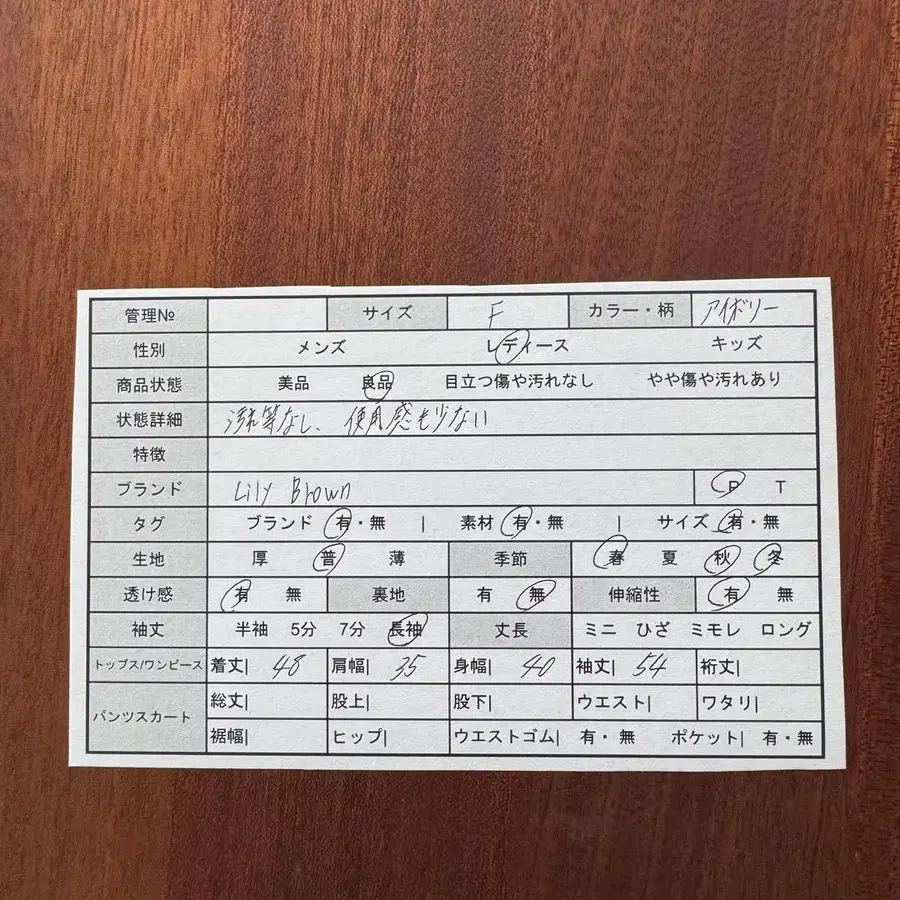 管理№ サイズ F カラー・柄 アイボリー
性別 メンズ レディース キッズ
商品状態 美品 良品 目立つ傷や汚れなし やや傷や汚れあり
状態詳細 汚れ等なし、使用感も少ない
特徴
ブランド Lily Brown P T
タグ ブランド 有・無 | 素材 有・無 | サイズ 有・無
生地 厚 普 薄 季節 春 夏 秋 冬
透け感 有 無 裏地 有 無 伸縮性 有 無
袖丈 半袖 5分 7分 長袖 丈長 ミニ ひざ ミモレ ロング
トップス/ワンピース 着丈| 48 肩幅| 35 身幅| 40 袖丈| 54 裄丈|
パンツスカート 総丈| 股上| 股下| ウエスト| ワタリ|
裾幅| ヒップ| ウエストゴム| 有・無 ポケット| 有・無